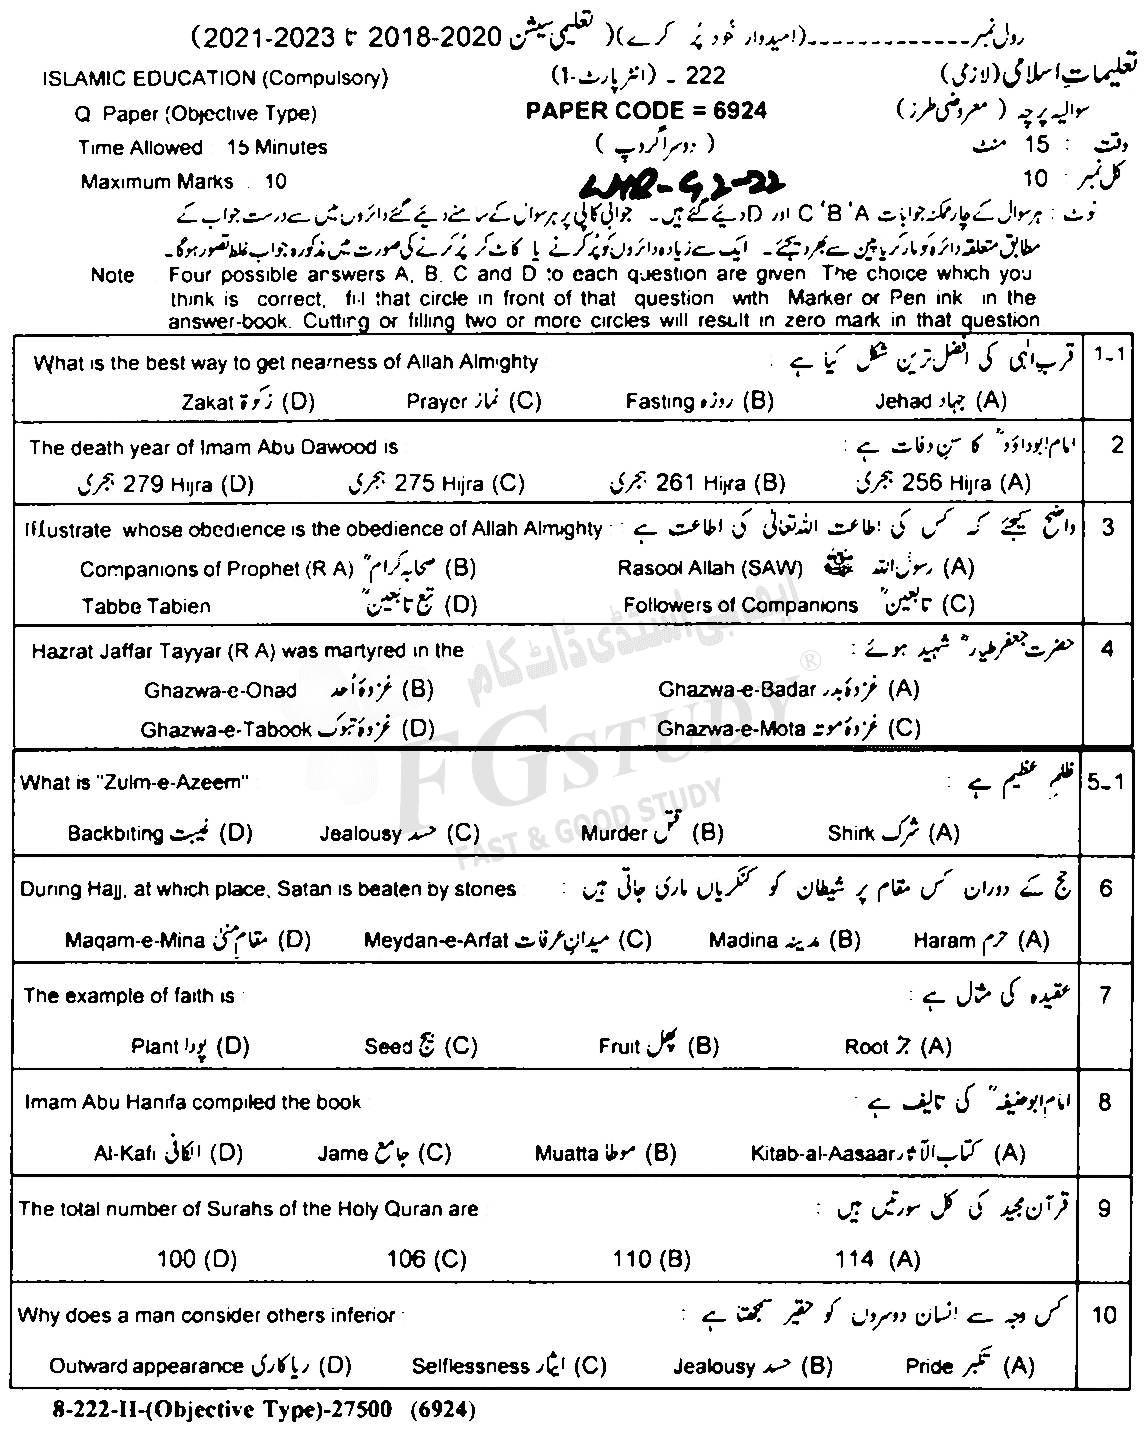 رول نمبر ـــــــــــــــــــــــــ (امیدوار خود پُر کرے) (تعلیمی سیشن 2020-2018 تا 2023-2021)
ISLAMIC EDUCATION (Compulsory) 222 - (انٹر پارٹ-I) تعلیماتِ اسلامی (لازمی)
Q Paper (Objective Type) PAPER CODE = 6924 سوالیہ پرچہ (معروضی طرز)
Time Allowed 15 Minutes (دوسرا گروپ) وقت : 15 منٹ
Maximum Marks 10 LHR-G2-22 کل نمبر : 10
نوٹ : ہر سوال کے چار ممکنہ جوابات A، B، C اور D دیئے گئے ہیں۔ جوابی کاپی پر ہر سوال کے سامنے دیئے گئے دائروں میں سے درست جواب کے
مطابق متعلقہ دائرہ کو مارکر یا پین سے بھر دیجئے۔ ایک سے زیادہ دائروں کو پُر کرنے یا کاٹ کر پُر کرنے کی صورت میں مذکورہ جواب غلط تصور ہوگا۔
Note Four possible answers A, B, C and D to each question are given The choice which you
think is correct, fill that circle in front of that question with Marker or Pen ink in the
answer-book. Cutting or filling two or more circles will result in zero mark in that question
What is the best way to get nearness of Allah Almighty قرب الٰہی کی افضل ترین شکل کیا ہے : 1-1
Zakat زکوٰۃ (D) Prayer نماز (C) Fasting روزہ (B) Jehad جہاد (A)
The death year of Imam Abu Dawood is امام ابوداؤدؒ کا سن وفات ہے : 2
279 Hijra ہجری (D) 275 Hijra ہجری (C) 261 Hijra ہجری (B) 256 Hijra ہجری (A)
Illustrate whose obedience is the obedience of Allah Almighty : واضح کیجئے کہ کس کی اطاعت اللہ تعالیٰ کی اطاعت ہے 3
Companions of Prophet (R A) صحابہ کرامؓ (B) Rasool Allah (SAW) رسول اللہ ﷺ (A)
Tabbe Tabien تبع تابعینؒ (D) Followers of Companions تابعینؒ (C)
Hazrat Jaffar Tayyar (R A) was martyred in the حضرت جعفر طیارؓ شہید ہوئے : 4
Ghazwa-e-Ohad غزوہ اُحد (B) Ghazwa-e-Badar غزوہ بدر (A)
Ghazwa-e-Tabook غزوہ تبوک (D) Ghazwa-e-Mota غزوہ موتہ (C)
What is "Zulm-e-Azeem" ظلمِ عظیم ہے : 5-1
Backbiting غیبت (D) Jealousy حسد (C) Murder قتل (B) Shirk شرک (A)
During Hajj, at which place, Satan is beaten by stones حج کے دوران کس مقام پر شیطان کو کنکریاں ماری جاتی ہیں : 6
Maqam-e-Mina مقامِ منیٰ (D) Meydan-e-Arfat میدانِ عرفات (C) Madina مدینہ (B) Haram حرم (A)
The example of faith is : عقیدہ کی مثال ہے : 7
Plant پودا (D) Seed بیج (C) Fruit پھل (B) Root جڑ (A)
Imam Abu Hanifa compiled the book امام ابوحنیفہؒ کی تالیف ہے : 8
Al-Kafi الکافی (D) Jame جامع (C) Muatta موطا (B) Kitab-al-Aasaar کتاب الآثار (A)
The total number of Surahs of the Holy Quran are قرآن مجید کی کل سورتیں ہیں : 9
100 (D) 106 (C) 110 (B) 114 (A)
Why does a man consider others inferior : کس وجہ سے انسان دوسروں کو حقیر سمجھتا ہے : 10
Outward appearance ریاکاری (D) Selflessness ایثار (C) Jealousy حسد (B) Pride تکبر (A)
8-222-II-(Objective Type)-27500 (6924)
ایف جی اسٹڈی ڈاٹ کام
FG STUDY ®
FAST & GOOD STUDY